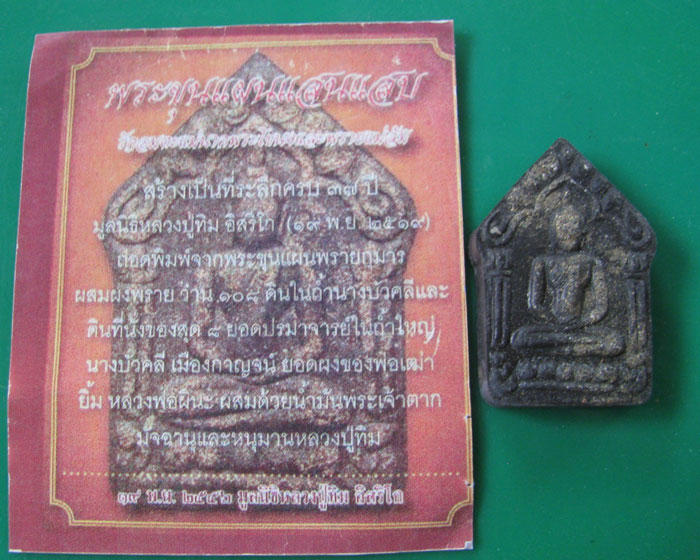 พระขุนแผนแสนแสบ
สร้างเป็นที่ระลึกครบ ๓๗ ปี
มูลนิธิหลวงปู่ทิม อิสริโก (๑๙ พ.ย. ๒๕๑๙)
ถอดพิมพ์จากพระขุนแผนพรายกุมาร
ผสมผงพราย ว่าน ๑๐๘ ดินในถ้ำนางบัวคลีและ
ดินที่นั่งของสุด ๘ ยอดปรมาจารย์ในถ้ำใหญ่
นางบัวคลี เมืองกาญจน์ ยอดผงของพ่อเฒ่า
ยิ้ม หลวงพ่อผินะ ผสมด้วยน้ำมันพระเจ้าตาก
มัจฉานุและหนุมานหลวงปู่ทิม
๑๙ พ.ย. ๒๕๕๒ มูลนิธิหลวงปู่ทิม อิสริโก